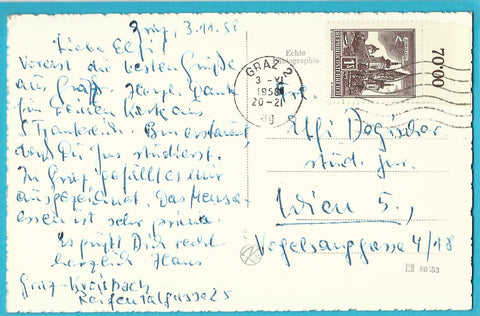 Graz, 3.11.58
Liebe Elfi!
Vorerst die besten Grüße
aus Graz. Herzl. Dank
für Deinen Karte aus
Frankreich. Bin erstaunt,
dass Du Jus studierst.
In Graz gefällt es mir
ausgezeichnet. Das Mensa-
essen ist sehr prima.
Es grüßt Dich recht
herzlich Hans
Graz-Kroisbach
Reifentalgasse 25
Echte
Photographie
GRAZ 2
3 - VI
1958
20-21
8g
70'00
Elfi
stud. jur.
Wien 5.,
Vogelsanggasse 4/18
60 153